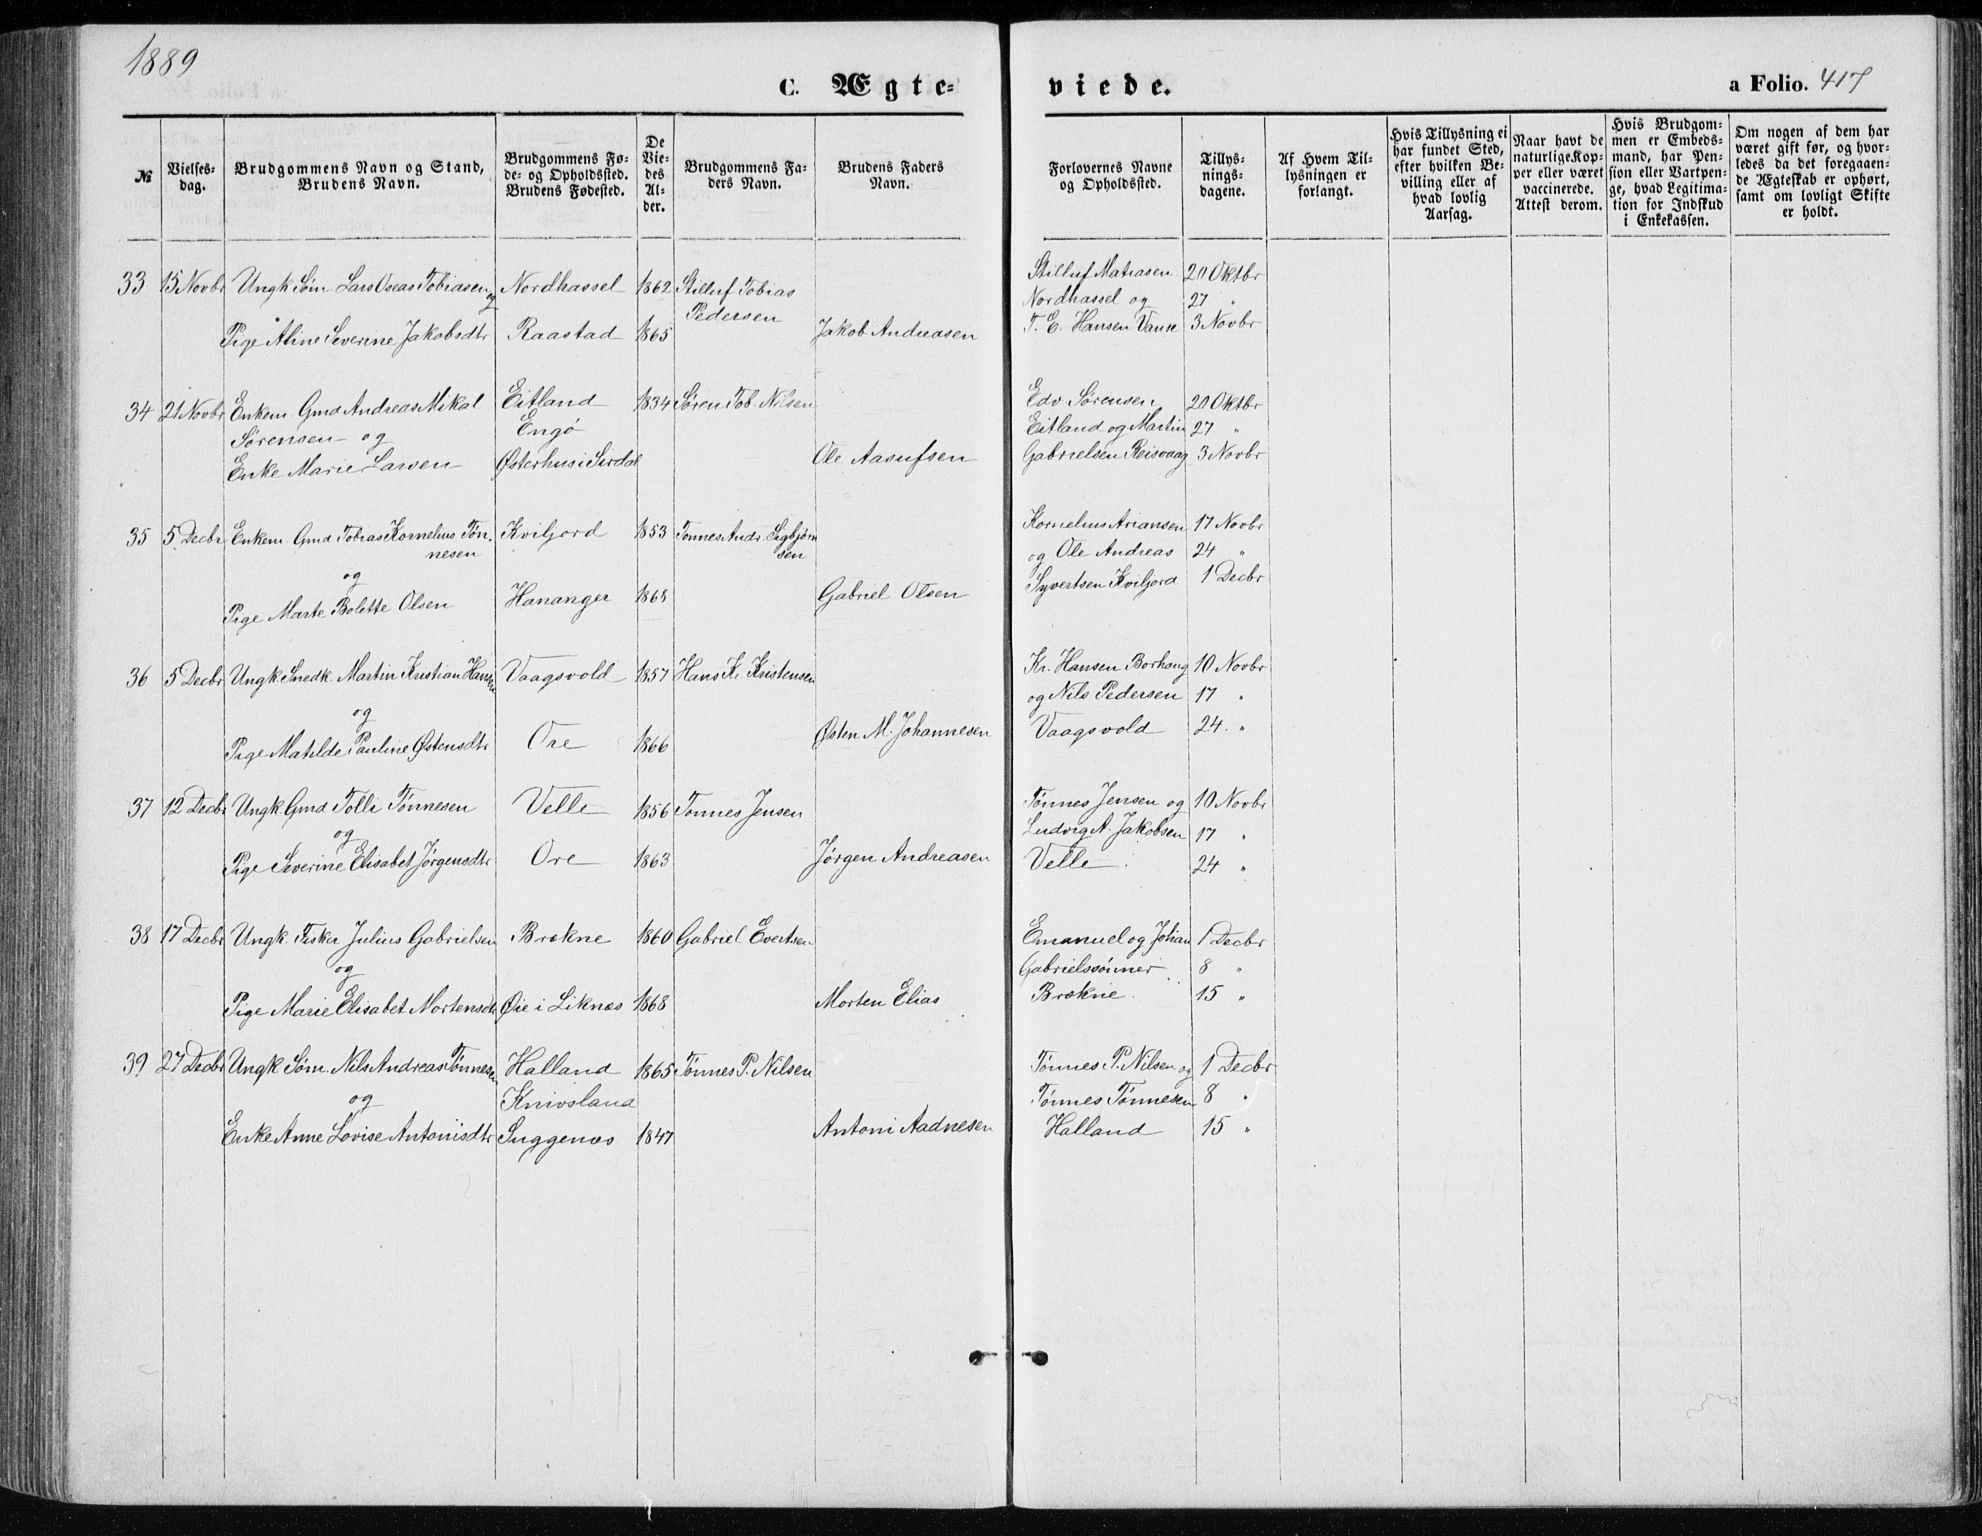 1889
C. Ægte-
viede.
a Folio. 417
№
Vielses-
dag.
Brudgommens Navn og Stand,
Brudens Navn.
Brudgommens Fø-
de- og Opholdssted.
Brudens Fødested.
De
Vie-
des
Al-
der.
Brudgommens Fa-
ders Navn.
Brudens Faders
Navn.
Forlovernes Navne
og Opholdssted.
Tillys-
nings-
dagene.
Af Hvem Til-
lysningen er
forlangt.
Hvis Tillysning ei
har fundet Sted,
efter hvilken Be-
villing eller af
hvad lovlig
Aarsag.
Naar havt de
naturlige Kop-
per eller været
vaccinerede.
Attest derom.
Hvis Brudgom-
men er Embeds-
mand, har Pen-
sion eller Vartpen-
ge, hvad Legitima-
tion for Indskud
i Enkekassen.
Om nogen af dem har
været gift før, og hvor-
ledes da det foregaaen-
de Ægteskab er ophørt,
samt om lovligt Skifte
er holdt.
33 15 Novbr Ungk Søm. Lars Oseas Tobiasen og Nordhassel 1862 Stilluf Tobias Stilluf Matiasen 20 Oktbr
Pedersen Nordhassel og 27 "
Pige Aline Severine Jakobsdtr Raastad 1865 Jakob Andreasen T. E. Hansen Vanse 3 Novbr
34 21 Novbr Enkem. Gmd Andreas Mikal Eitland 1834 Søren Tob. Nilsen Edv Sørensen 20 Oktbr
Sørensen og Engø Eitland og Martin 27 "
Enke Marie Larsen Østerhus i Sirdal Ole Aasufsen Gabrielsen Reisvaag 3 Novbr
35 5 Decbr Enkem. Gmd Tobias Kornelius Tøn- Kviljord 1853 Tønnes Andr. Sigbjørn Kornelius Ariansen 17 Novbr
nesen sen og Ole Andreas 24 "
og
Pige Marte Bolette Olsen Hananger 1868 Gabriel Olsen Syvertsen Kviljord 1 Decbr
36 5 Decbr Ungk Snedk. Martin Kristian Hansen Vaagsvold 1857 Hans K. Kristensen Kr. Hansen Borhaug 10 Novbr
og og Nils Pedersen 17 "
Pige Matilde Pauline Østensdtr Ore 1866 Østen M. Johannesen Vaagsvold 24. "
37 12 Decbr Ungk Gmd Tolli Tønnesen Velle 1856 Tønnes Jensen Tønnes Jensen og 10 Novbr
og Ludvig A. Jakobsen 17 "
Pige Severine Elisabet Jørgensdtr Ore 1863 Jørgen Andreasen Velle 24 "
38 17 Decbr Ungk. Fisker Julius Gabrielsen Brekne 1860 Gabriel Evertsen Emanuel og Johan 1 Decbr
og Gabrielssønner 8 "
Pige Marie Elisabet Mortensdtr Øie i Liknes 1868 Morten Elias Brekne 15 "
39 27 Decbr Ungk Søm. Nils Andreas Tønnesen Halland 1865 Tønnes P. Nilsen Tønnes P. Nilsen og 1 Decbr
og Knivsland Tønnes Tønnesen 8 "
Enke Anne Lovise Antonisdtr Suggenes 1847 Antoni Aadnesen Halland 15 "